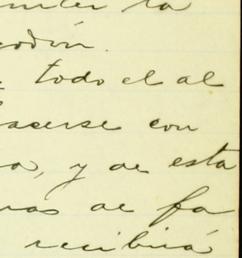 la
godón.
todo el al
hacerse con
a, y de esta
mas de fa
recibirá